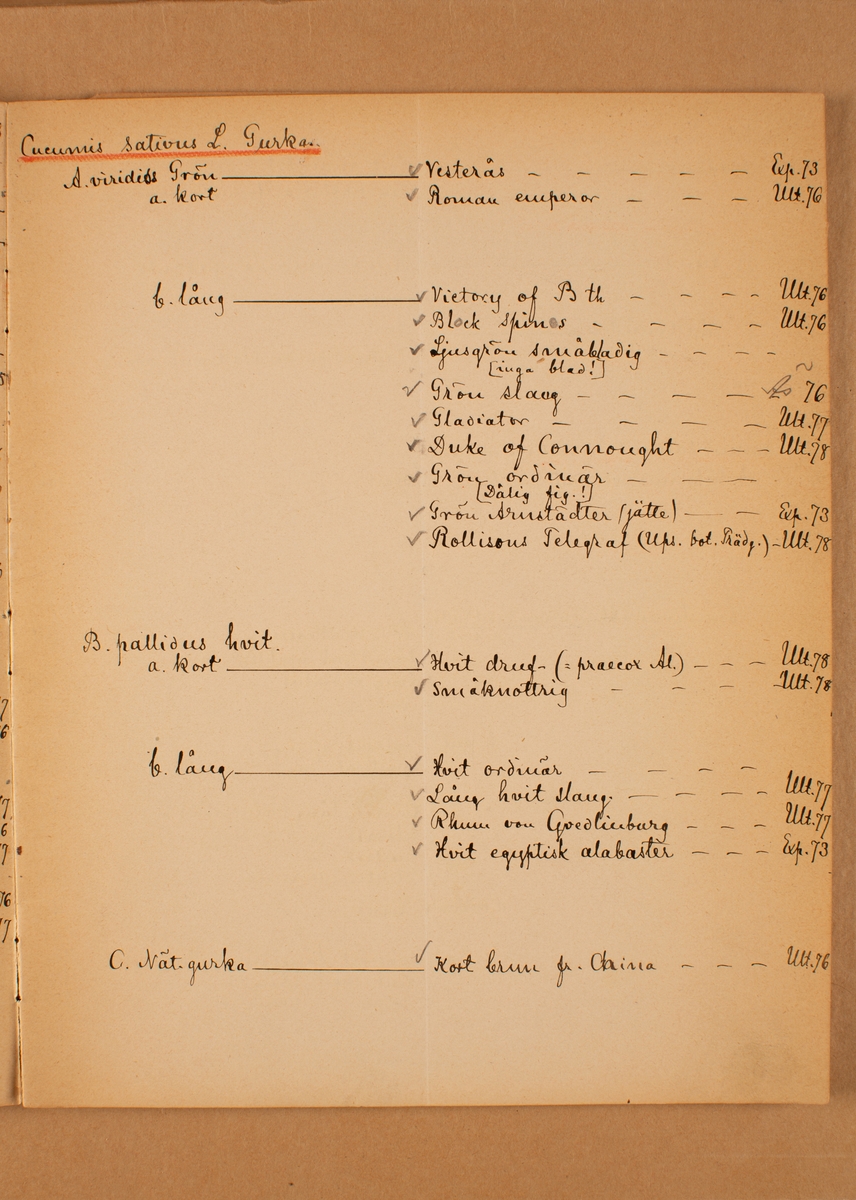 Cucumis sativus L. Gurka.
A. viridis Grön — Vesterås — — — — — Exp. 73
a. kort ✓ Roman emperor — — — Utt. 76
b. lång — ✓ Victory of Bth — — — — Utt. 76
✓ Black spines — — — — Utt. 76
✓ Ljusgrön småbladig — — — —
[inga blad!]
✓ Grön slang — — — — 76
✓ Gladiator — — — — Utt. 77
✓ Duke of Connought — — — Utt. 78
✓ Grön ordinär — — —
[Dålig fig.!]
✓ Grön Arnstädter (jätte) — — Exp. 73
✓ Rollisons Telegraf (Ups. bot. Trädg.) — Utt. 78
B. pallidus hvit.
a. kort — ✓ Hvit druf- (= praecox Al.) — — — Utt. 78
✓ Småknottrig — — — — Utt. 78
b. lång — ✓ Hvit ordinär — — — —
✓ Lång hvit slang. — — — — Utt. 77
✓ Rhum von Qvedlinburg — — — Utt. 77
✓ Hvit egyptisk alabaster — — — Exp. 73
C. Nät-gurka — ✓ Kort brun fr. China — — — Utt. 76